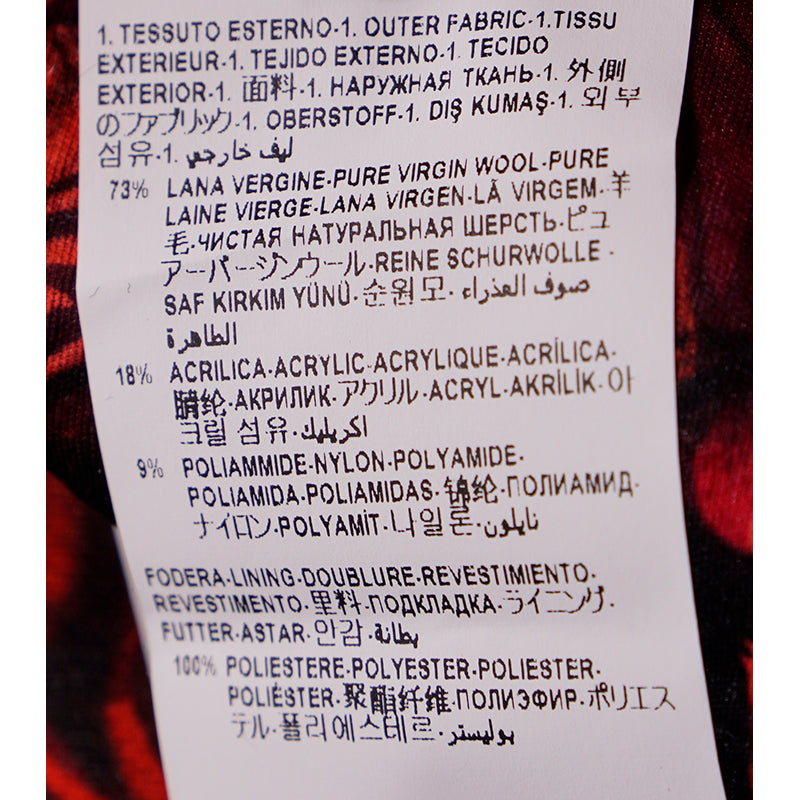 1. TESSUTO ESTERNO-1. OUTER FABRIC-1.TISSU
EXTERIEUR-1. TEJIDO EXTERNO-1. TECIDO
EXTERIOR-1. 面料-1. НАРУЖНАЯ ТКАНЬ-1. 外側
のファブリック-1. OBERSTOFF-1. DIŞ KUMAŞ-1. 외부
섬유-1. ليف خارجي
73% LANA VERGINE-PURE VIRGIN WOOL-PURE
LAINE VIERGE-LANA VIRGEN-LÃ VIRGEM-羊
毛-ЧИСТАЯ НАТУРАЛЬНАЯ ШЕРСТЬ-ピュ
アーバージンウール-REINE SCHURWOLLE -
SAF KIRKIM YÜNÜ-순원모-صوف العذراء
الطاهرة
18% ACRILICA-ACRYLIC-ACRYLIQUE-ACRÍLICA-
腈纶-АКРИЛИК-アクリル-ACRYL-AKRİLİK-아
크릴 섬유-اكريليك
9% POLIAMMIDE-NYLON-POLYAMIDE-
POLIAMIDA-POLIAMIDAS-锦纶-ПОЛИАМИД-
ナイロン-POLYAMIT-나일론-نايلون
FODERA-LINING-DOUBLURE-REVESTIMIENTO-
REVESTIMENTO-里料-ПОДКЛАДКА-ライニング-
FUTTER-ASTAR-안감-بطانة
100% POLIESTERE-POLYESTER-POLIESTER-
POLIÉSTER-聚酯纤维-ПОЛИЭФИР-ポリエス
テル-폴리에스테르-بوليستر